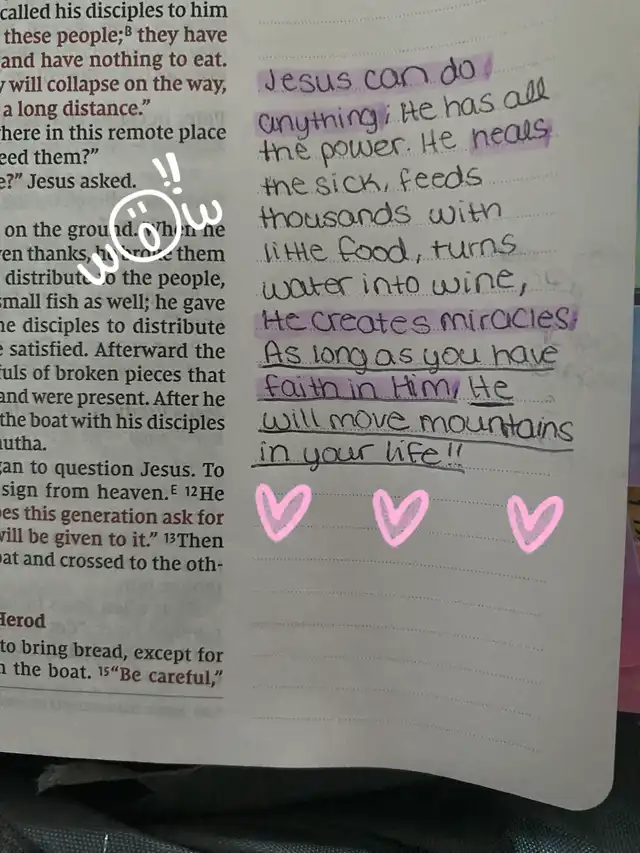 called his disciples to him
these people;ᴮ they have
and have nothing to eat.
y will collapse on the way,
a long distance."
where in this remote place
eed them?"
e?" Jesus asked.
on the ground. When he
en thanks, he broke them
distribute to the people,
small fish as well; he gave
he disciples to distribute
e satisfied. Afterward the
fuls of broken pieces that
and were present. After he
the boat with his disciples
nutha.
gan to question Jesus. To
sign from heaven.ᴱ ¹²He
oes this generation ask for
will be given to it." ¹³Then
oat and crossed to the oth-
Herod
to bring bread, except for
n the boat. ¹⁵"Be careful,"
wow!!
Jesus can do
anything; He has all
the power. He heals
the sick, feeds
thousands with
little food, turns
water into wine,
He creates miracles.
As long as you have
faith in Him, He
will move mountains
in your life!!